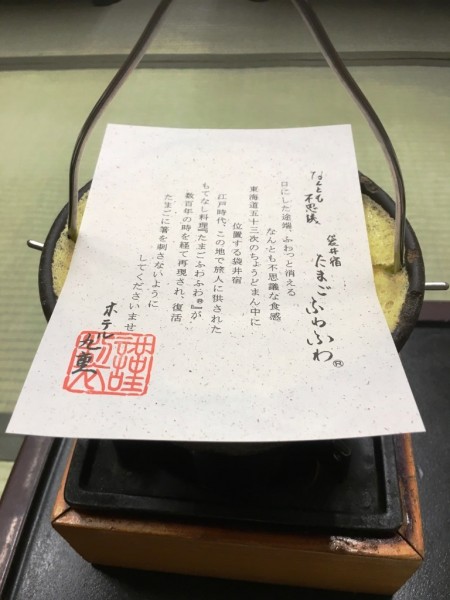 なんとも
不思議
袋井宿
たまごふわふわ®
口にした途端、ふわっと消える
なんとも不思議な食感
東海道五十三次のちょうどまん中に
位置する袋井宿
江戸時代、この地で旅人に供された
もてなし料理『たまごふわふわ®』が
数百年の時を経て再現され、復活
たまごに箸を刺さないように
してくださいませ
ホテル